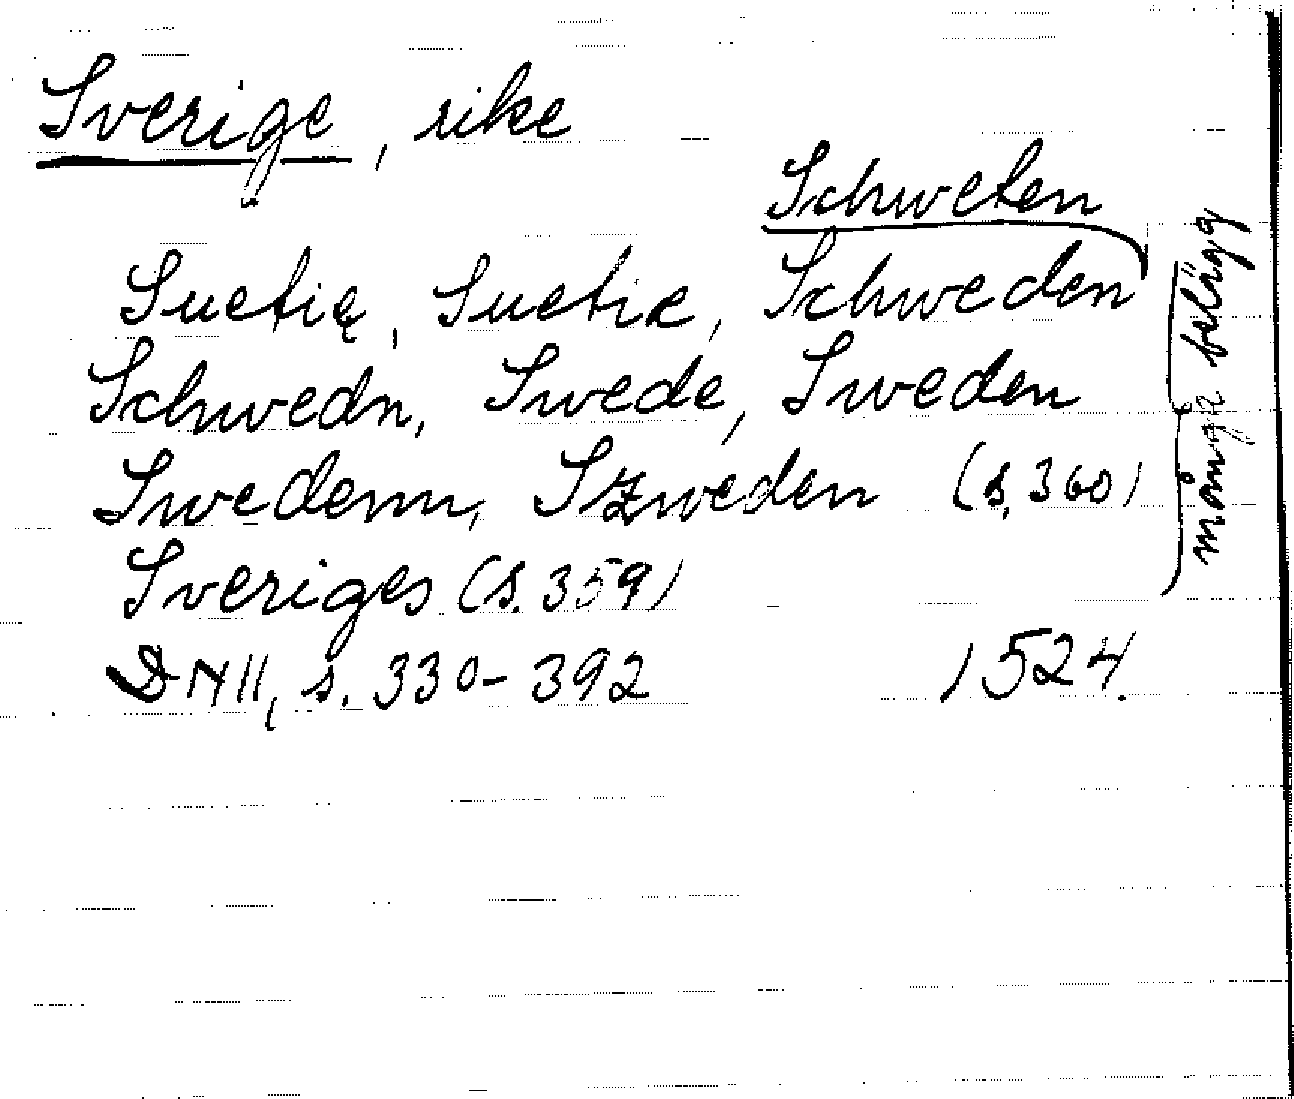 Sverige, rike
Schweten
Suetię, Suetie, Schweden
Schwedn, Swede, Sweden
Swedenn, Szweden (s. 360)
Sveriges (s. 359)
DN II, s. 330-392 1524.
många belägg